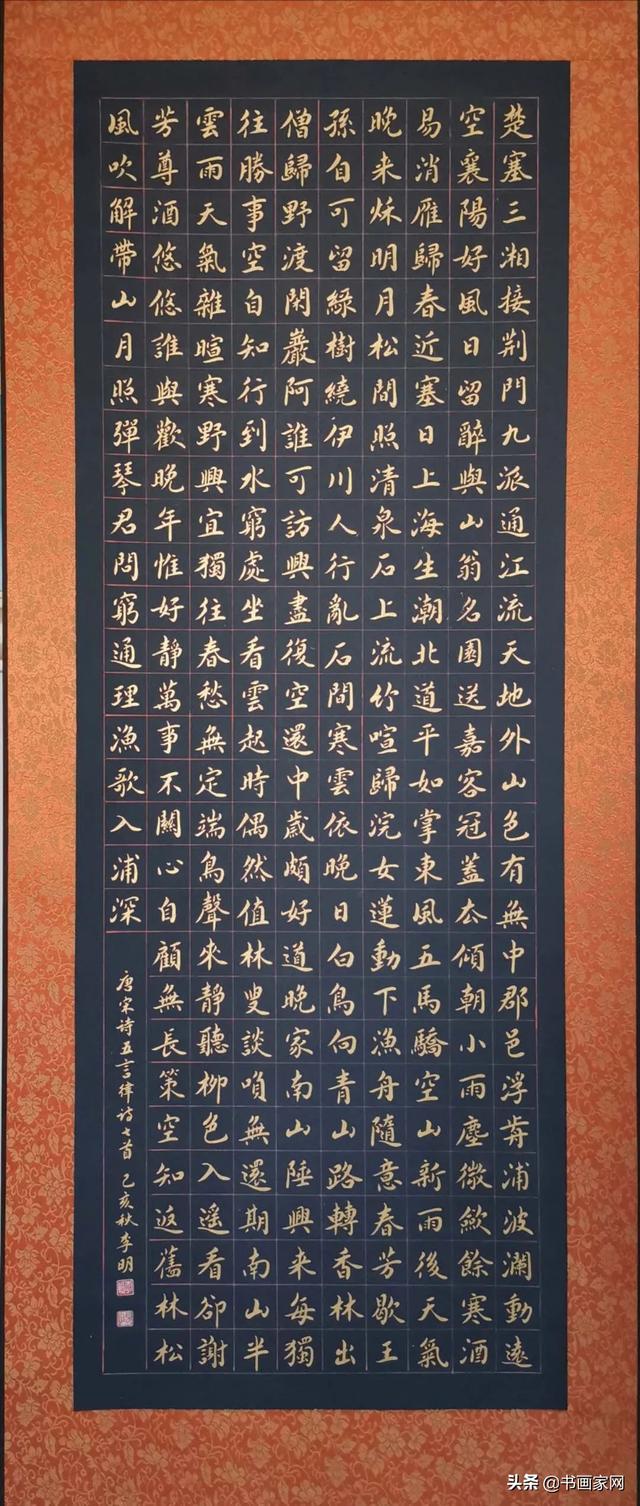 楚塞三湘接荆門九派通江流天地外山色有無中郡邑浮歬浦波瀾動遠
空襄陽好風日留醉與山翁名園送嘉客冠蓋傾朝小雨塵微歛餘寒酒
易消雁歸春近塞日上海生潮北道平如掌東風五馬驕空山新雨後天氣
晚来秌明月松間照清泉石上流竹喧歸浣女蓮動下漁舟隨意春芳歇王
孫自可留綠樹繞伊川人行亂石間寒雲依晚日白鳥向青山路轉香林出
僧歸野渡閑巖阿誰可訪興盡復空還中歲頗好道晚家南山陲興来每獨
往勝事空自知行到水窮處坐看雲起時偶然值林叟談咲無還期南山半
雲雨天氣雜暄寒野興宜獨往春愁無定端鳥聲來靜聽柳色入遥看卻謝
芳尊酒悠悠誰與歡晚年惟好靜萬事不關心自顧無長策空知返舊林松
風吹解帶山月照彈琴君問窮通理漁歌入浦深
唐宋诗五言律诗七首 己亥秋李明
头条 @书画家网